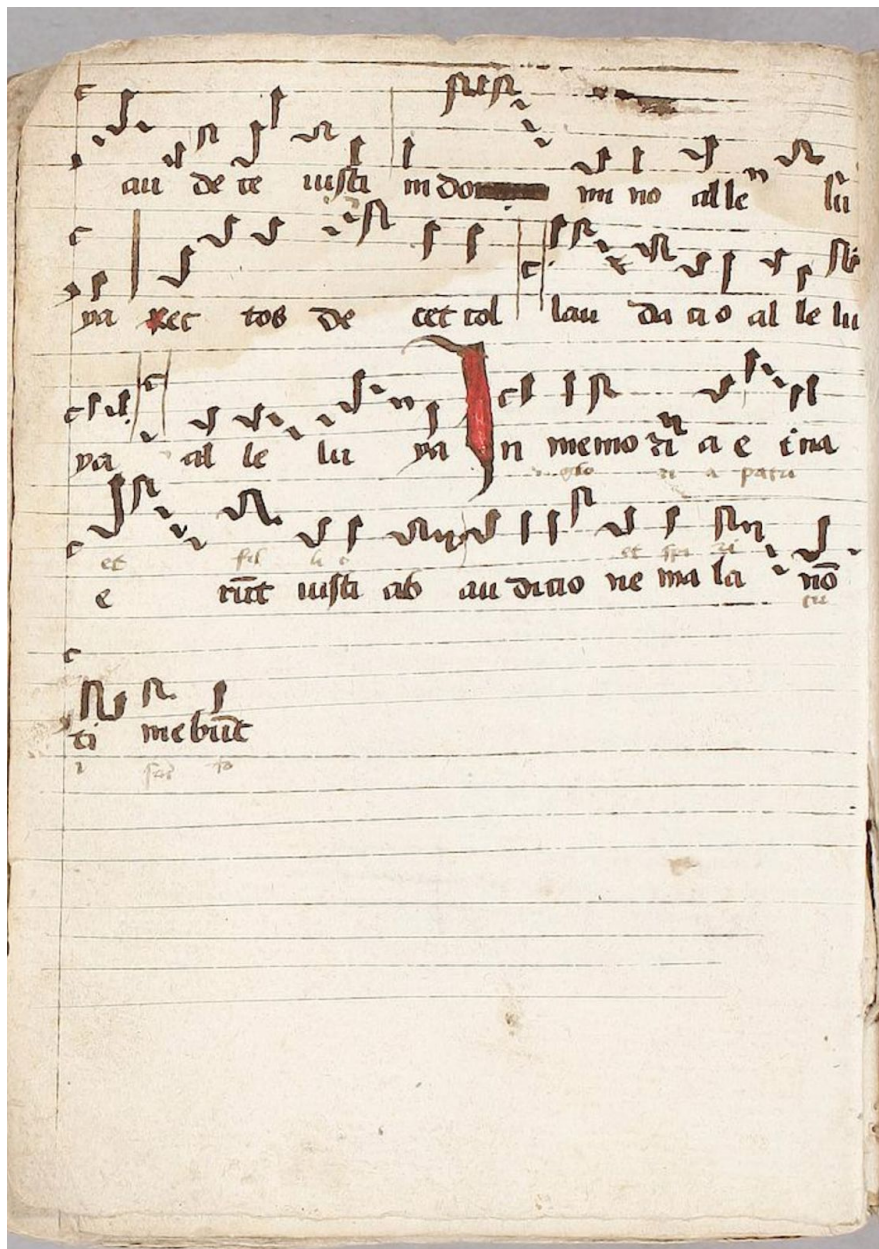 au de te iusti in do mi no alle lu
ya Rec tos de cet col lau da ci o al le lu
ya al le lu ya In memo ri a e t'na
glo ri a patri
et fil li o et spi ri
e rūt iusti ab au dicio ne ma la nō
tu
ti mebūt
i